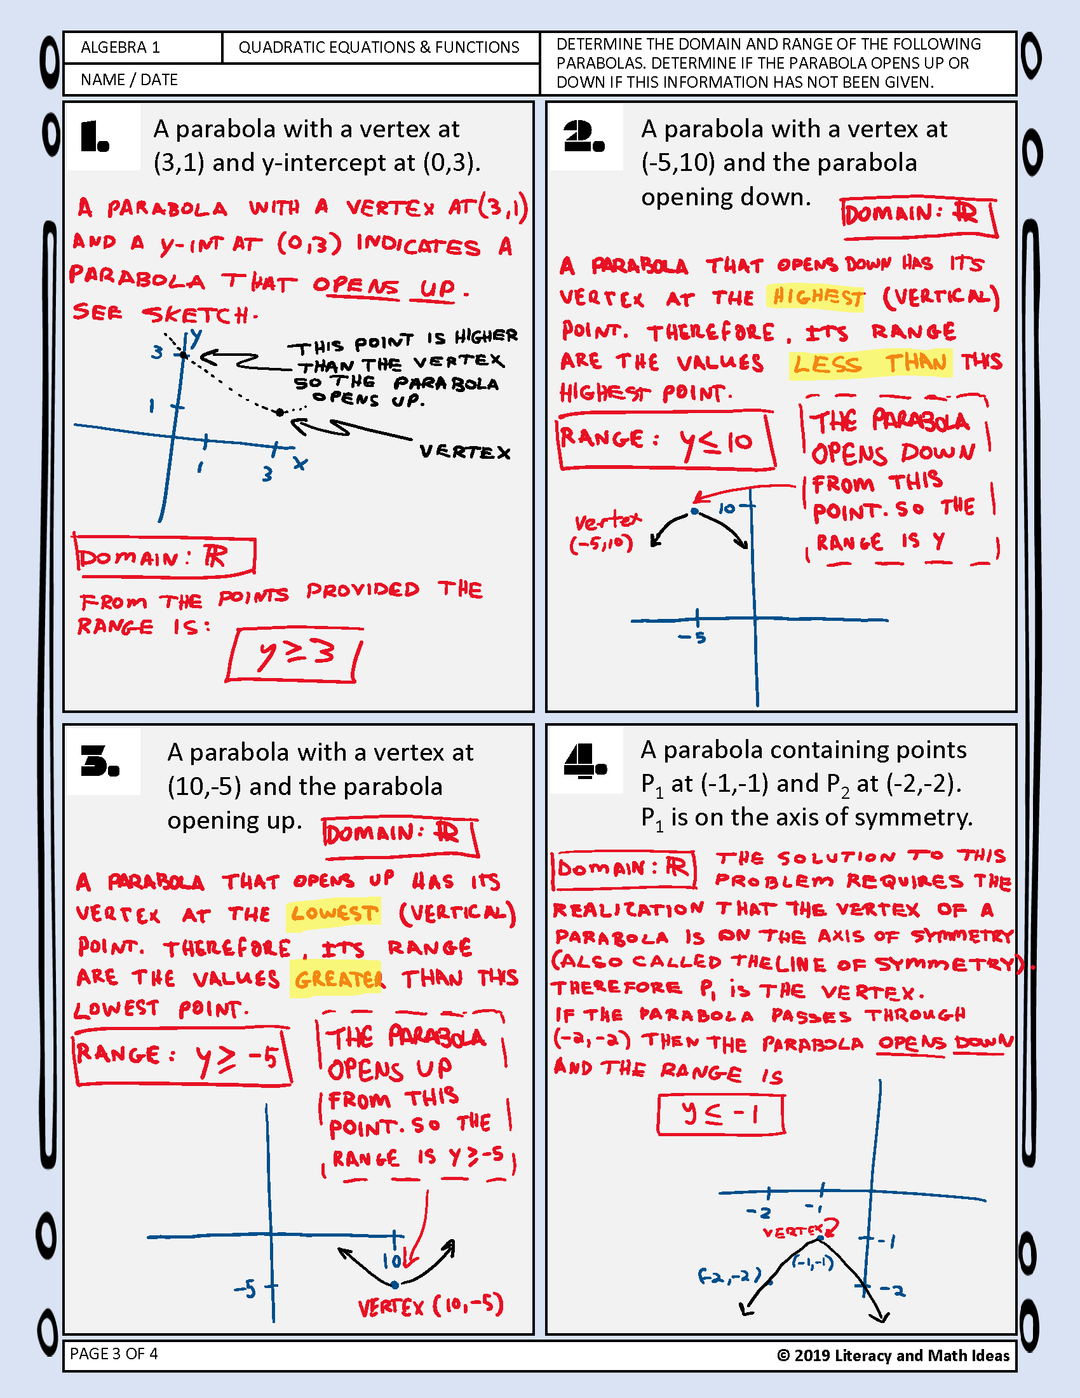 ALGEBRA 1
QUADRATIC EQUATIONS & FUNCTIONS
NAME / DATE
DETERMINE THE DOMAIN AND RANGE OF THE FOLLOWING
PARABOLAS. DETERMINE IF THE PARABOLA OPENS UP OR
DOWN IF THIS INFORMATION HAS NOT BEEN GIVEN.
1.
A parabola with a vertex at
(3,1) and y-intercept at (0,3).
A PARABOLA WITH A VERTEX AT (3,1)
AND A Y-INT AT (0,3) INDICATES A
PARABOLA THAT OPENS UP.
SEE SKETCH.
y
3
THIS POINT IS HIGHER
THAN THE VERTEX
SO THE PARABOLA
OPENS UP.
1
VERTEX
1
3
X
DOMAIN: ℝ
FROM THE POINTS PROVIDED THE
RANGE IS:
y≥3
2.
A parabola with a vertex at
(-5,10) and the parabola
opening down.
DOMAIN: ℝ
A PARABOLA THAT OPENS DOWN HAS ITS
VERTEX AT THE HIGHEST (VERTICAL)
POINT. THEREFORE, ITS RANGE
ARE THE VALUES LESS THAN THIS
HIGHEST POINT.
RANGE: y≤10
THE PARABOLA
OPENS DOWN
FROM THIS
POINT. SO THE
RANGE IS Y
10
Vertex
(-5,10)
-5
3.
A parabola with a vertex at
(10,-5) and the parabola
opening up.
DOMAIN: ℝ
A PARABOLA THAT OPENS UP HAS ITS
VERTEX AT THE LOWEST (VERTICAL)
POINT. THEREFORE, ITS RANGE
ARE THE VALUES GREATER THAN THIS
LOWEST POINT.
RANGE: y≥-5
THE PARABOLA
OPENS UP
FROM THIS
POINT. SO THE
RANGE IS Y≥-5
10
-5
VERTEX (10,-5)
4.
A parabola containing points
P1 at (-1,-1) and P2 at (-2,-2).
P1 is on the axis of symmetry.
DOMAIN: ℝ
THE SOLUTION TO THIS
PROBLEM REQUIRES THE
REALIZATION THAT THE VERTEX OF A
PARABOLA IS ON THE AXIS OF SYMMETRY
(ALSO CALLED THE LINE OF SYMMETRY).
THEREFORE P1 IS THE VERTEX.
IF THE PARABOLA PASSES THROUGH
(-2,-2) THEN THE PARABOLA OPENS DOWN
AND THE RANGE IS
y≤-1
-2
-1
VERTEX
-1
(-1,-1)
(-2,-2)
-2
PAGE 3 OF 4
© 2019 Literacy and Math Ideas